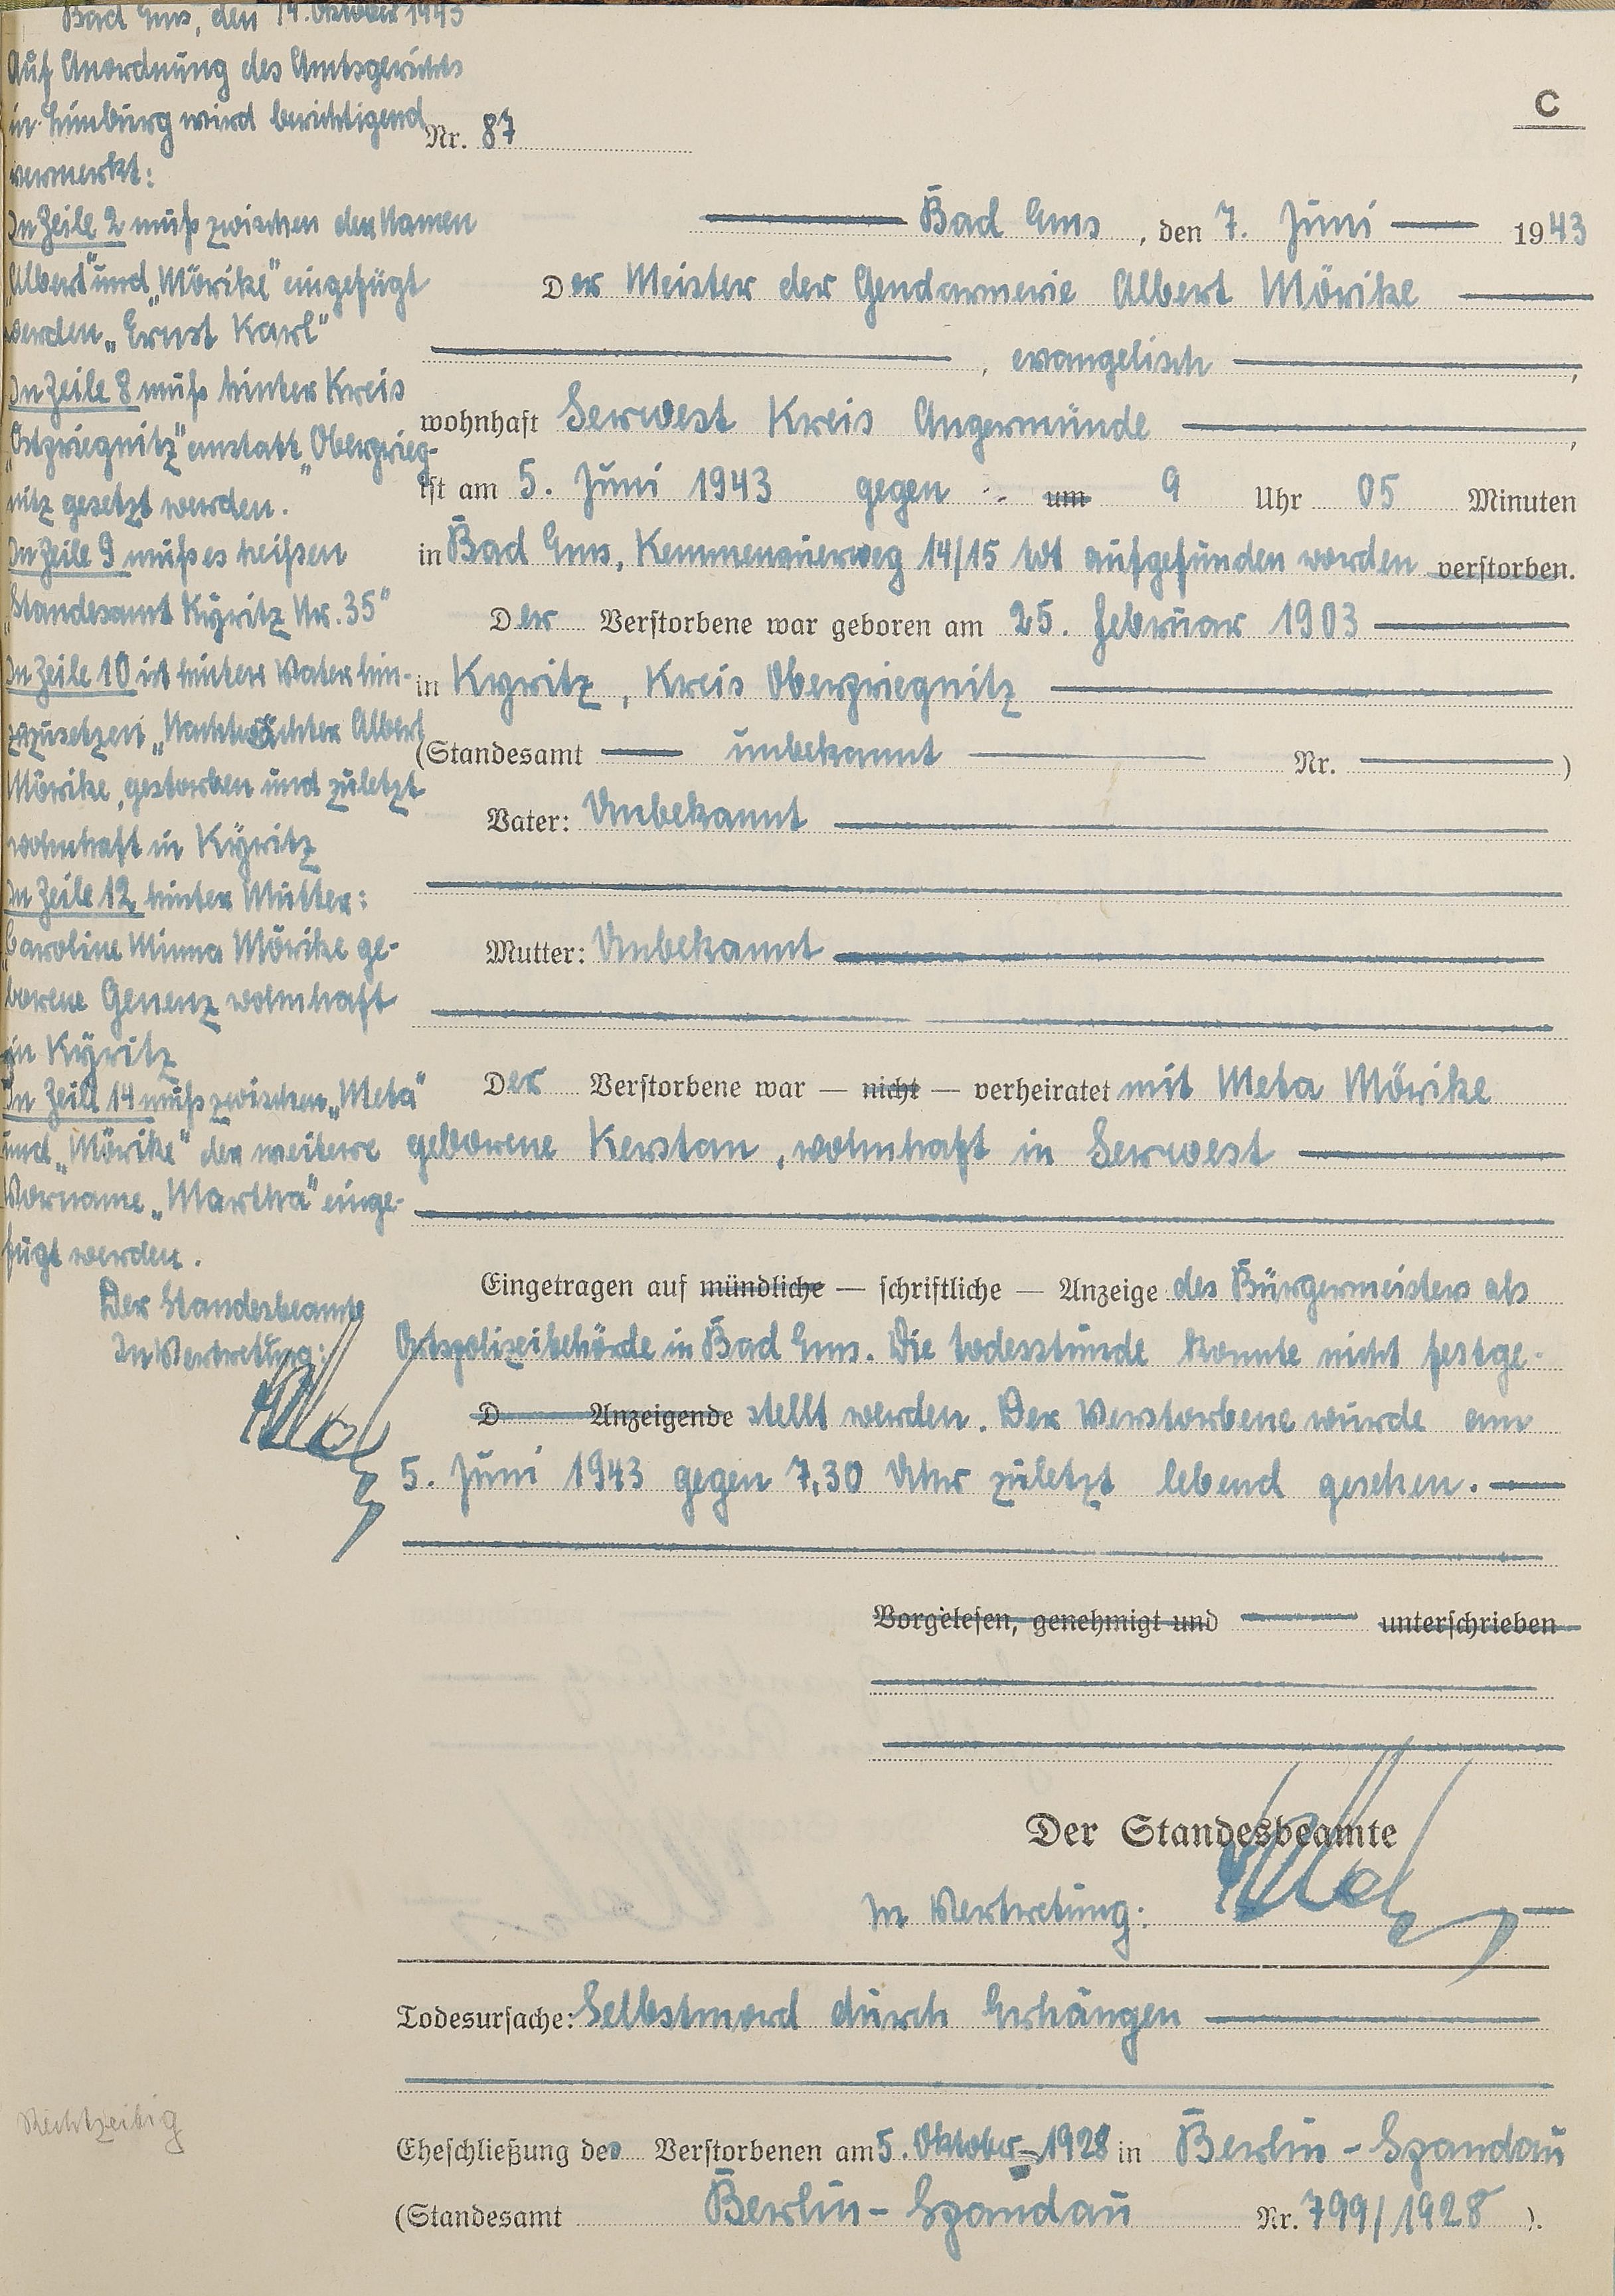 C
Nr. 87
Bad Ems, den 7. Juni 1943
Der Meister der Gendarmerie Albert Mörike
, evangelisch ,
wohnhaft Serwest Kreis Angermünde ,
ist am 5. Juni 1943 gegen um 9 Uhr 05 Minuten
in Bad Ems, Kemmenauerweg 14/15 tot aufgefunden worden verstorben.
Der Verstorbene war geboren am 25. Februar 1903
in Kyritz, Kreis Oberpriegnitz
(Standesamt unbekannt Nr. )
Vater: Unbekannt
Mutter: Unbekannt
Der Verstorbene war — nicht — verheiratet mit Meta Mörike
geborene Kerstan, wohnhaft in Serwest
Eingetragen auf mündliche — schriftliche — Anzeige des Bürgermeisters als
Ortspolizeibehörde in Bad Ems. Die Todesstunde konnte nicht festge-
D Anzeigende stellt werden. Der Verstorbene wurde am
5. Juni 1943 gegen 7,30 Uhr zuletzt lebend gesehen.
Vorgelesen, genehmigt und unterschrieben
Der Standesbeamte
In Vertretung:
Todesursache: Selbstmord durch Erhängen
Eheschließung des Verstorbenen am 5. Oktober 1928 in Berlin-Spandau
(Standesamt Berlin-Spandau Nr. 799/1928 ).
Bad Ems, den 14. Oktober 1943
Auf Anordnung des Amtsgerichts
in Limburg wird berichtigend
vermerkt:
In Zeile 2 muß zwischen den Namen
„Albert" und „Mörike" eingefügt
werden „Ernst Karl"
In Zeile 8 muß hinter Kreis
„Ostpriegnitz" anstatt „Oberprieg-
nitz gesetzt werden.
In Zeile 9 muß es heißen
„Standesamt Kyritz Nr. 35"
In Zeile 10 ist hinter Vater hin-
zuzusetzen „Nachtwächter Albert
Mörike, gestorben und zuletzt
wohnhaft in Kyritz
In Zeile 12 hinter Mutter:
Caroline Minna Mörike ge-
borene Genenz wohnhaft
in Kyritz
In Zeile 14 muß zwischen „Meta"
und „Mörike" der weitere
Vorname „Martha" einge-
fügt werden.
Der Standesbeamte
In Vertretung:
Rechtzeitig